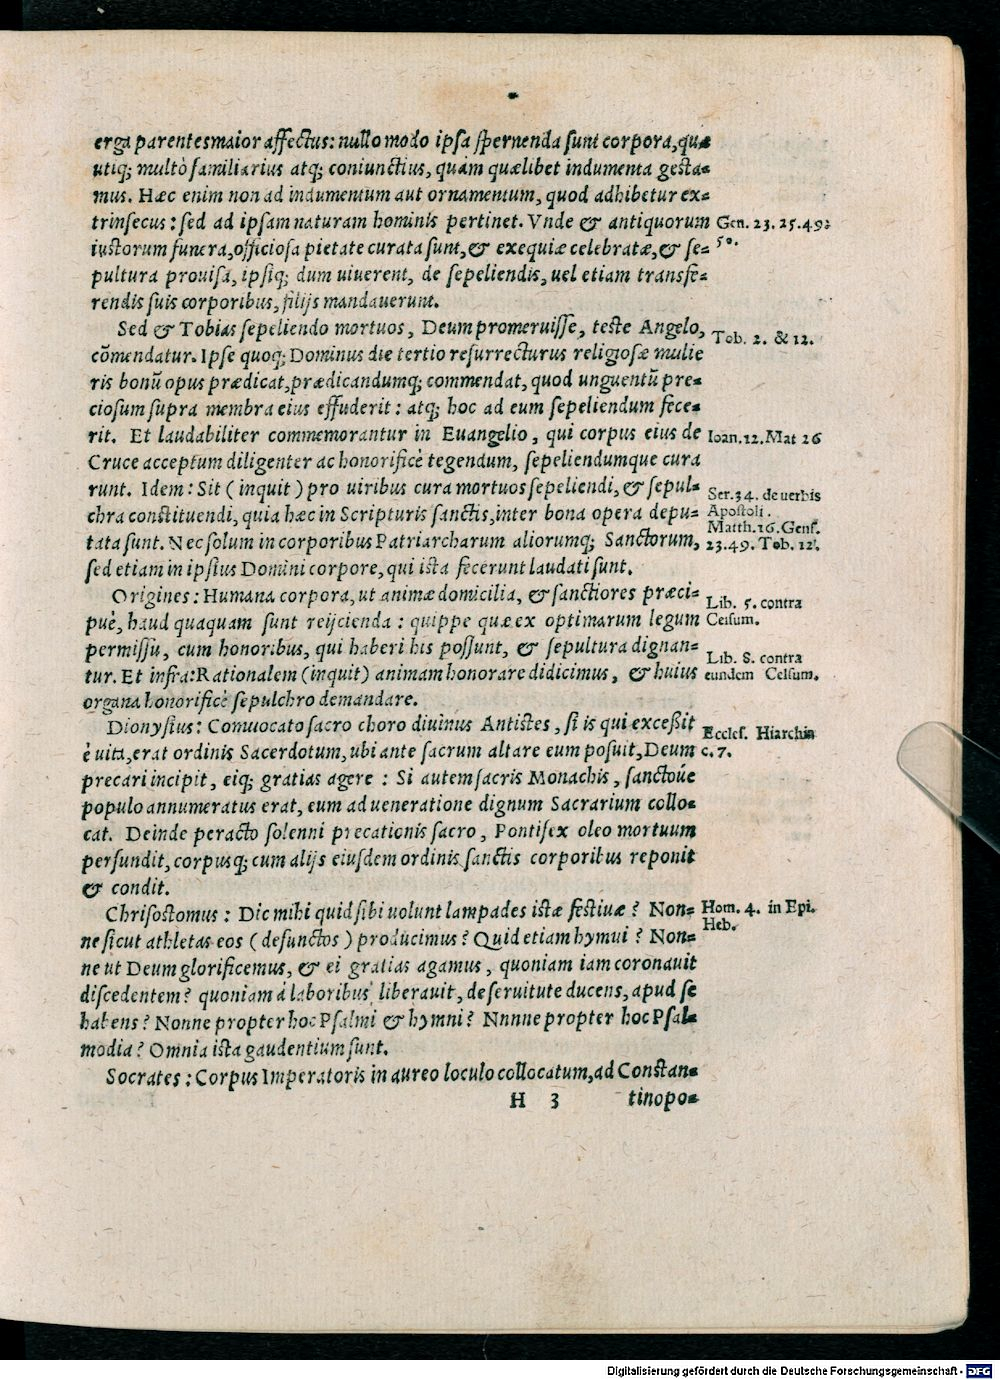 erga parentes maior affectus: nullo modo ipsa spernenda sunt corpora, quæ
utiq; multò familiarius atq; coniunctius, quàm quælibet indumenta gesta=
mus. Hæc enim non ad indumentum aut ornamentum, quod adhibetur ex=
trinsecus: sed ad ipsam naturam hominis pertinet. Vnde & antiquorum
Gen. 23. 25. 49.
50.
iustorum funera, officiosa pietate curata sunt, & exequiæ celebratæ, & se=
pultura prouisa, ipsiq; dum uiuerent, de sepeliendis, uel etiam transfe=
rendis suis corporibus, filijs mandauerunt.
Sed & Tobias sepeliendo mortuos, Deum promeruisse, teste Angelo,
Tob. 2. & 12.
cõmendatur. Ipse quoq; Dominus die tertio resurrecturus religiosæ mulie
ris bonũ opus prædicat, prædicandumq; commendat, quod unguentũ pre=
ciosum supra membra eius effuderit: atq; hoc ad eum sepeliendum fece=
rit. Et laudabiliter commemorantur in Euangelio, qui corpus eius de
Ioan. 12. Mat 26
Cruce acceptum diligenter ac honorificè tegendum, sepeliendumque cura
runt. Idem: Sit (inquit) pro uiribus cura mortuos sepeliendi, & sepul=
Ser. 34. de uerbis
Apostoli.
chra constituendi, quia hæc in Scripturis sanctis, inter bona opera depu=
Matth. 26. Genes.
23. 49. Tob. 12.
tata sunt. Nec solum in corporibus Patriarcharum aliorumq; Sanctorum,
sed etiam in ipsius Domini corpore, qui ista fecerunt laudati sunt.
Origines: Humana corpora, ut animæ domicilia, & sanctiores præci=
Lib. 5. contra
Celsum.
puè, haud quaquam sunt reijcienda: quippe quæ ex optimarum legum
permissu, cum honoribus, qui haberi his possunt, & sepultura dignan=
Lib. 8. contra
eundem Celsum.
tur. Et infra: Rationalem (inquit) animam honorare didicimus, & huius
organa honorificè sepulchro demandare.
Dionysius: Conuocato sacro choro diuinus Antistes, si is qui excessit
Eccles. Hiarchia
c. 7.
è uita, erat ordinis Sacerdotum, ubi ante sacrum altare eum posuit, Deum
precari incipit, eiq; gratias agere: Si autem sacris Monachis, sanctoúe
populo annumeratus erat, eum ad ueneratione dignum Sacrarium collo=
cat. Deinde peracto solenni precationis sacro, Pontifex oleo mortuum
persundit, corpusq; cum alijs eiusdem ordinis sanctis corporibus reponit
& condit.
Chrisostomus: Dic mihi quid sibi uolunt lampades istæ festiuæ? Non=
Hom. 4. in Epi.
Heb.
ne sicut athletas eos (defunctos) producimus? Quid etiam hymni? Non=
ne ut Deum glorificemus, & ei gratias agamus, quoniam iam coronauit
discedentem? quoniam à laboribus liberauit, de seruitute ducens, apud se
habens? Nonne propter hoc Psalmi & hymni? Nnnne propter hoc Psal=
modia? Omnia ista gaudentium sunt.
Socrates: Corpus Imperatoris in aureo loculo collocatum, ad Constan=
H 3 tinopo=
Digitalisierung gefördert durch die Deutsche Forschungsgemeinschaft - DFG